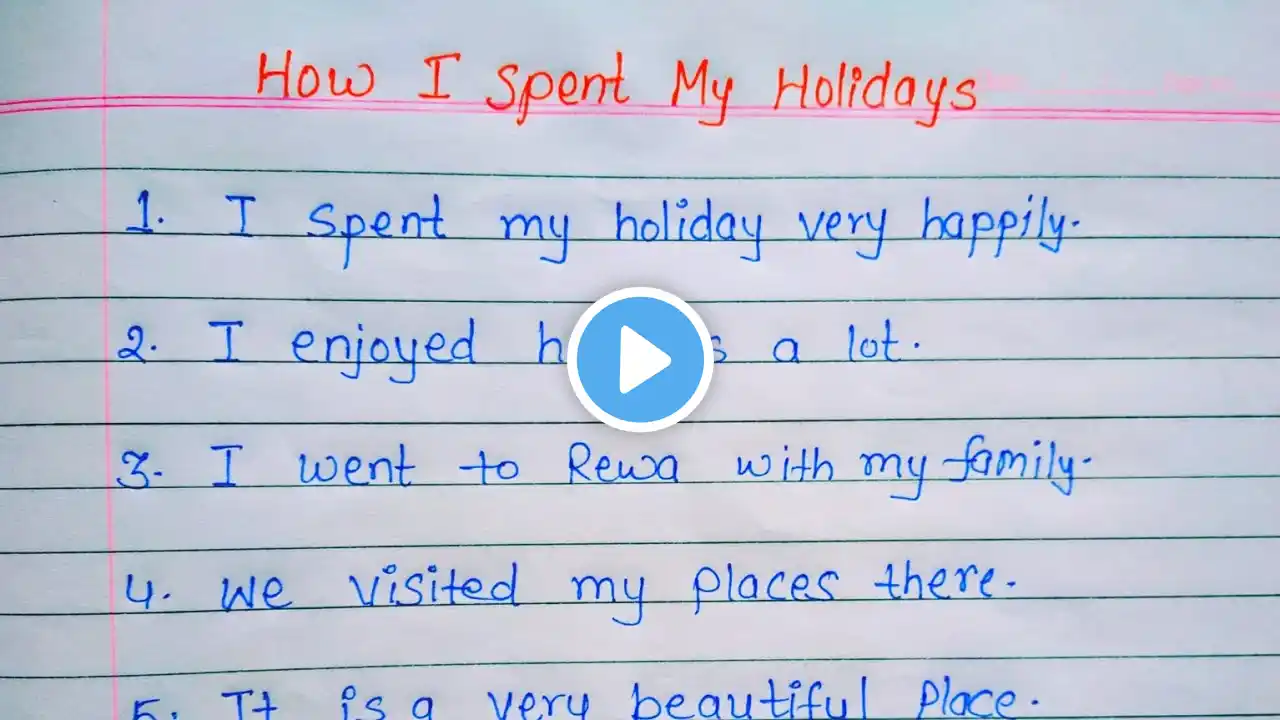 How I Spent My Holidays
1. I spent my holiday very happily.
2. I enjoyed a lot.
3. I went to Rewa with my family.
4. We visited my places there.
5. It is a very beautiful place.